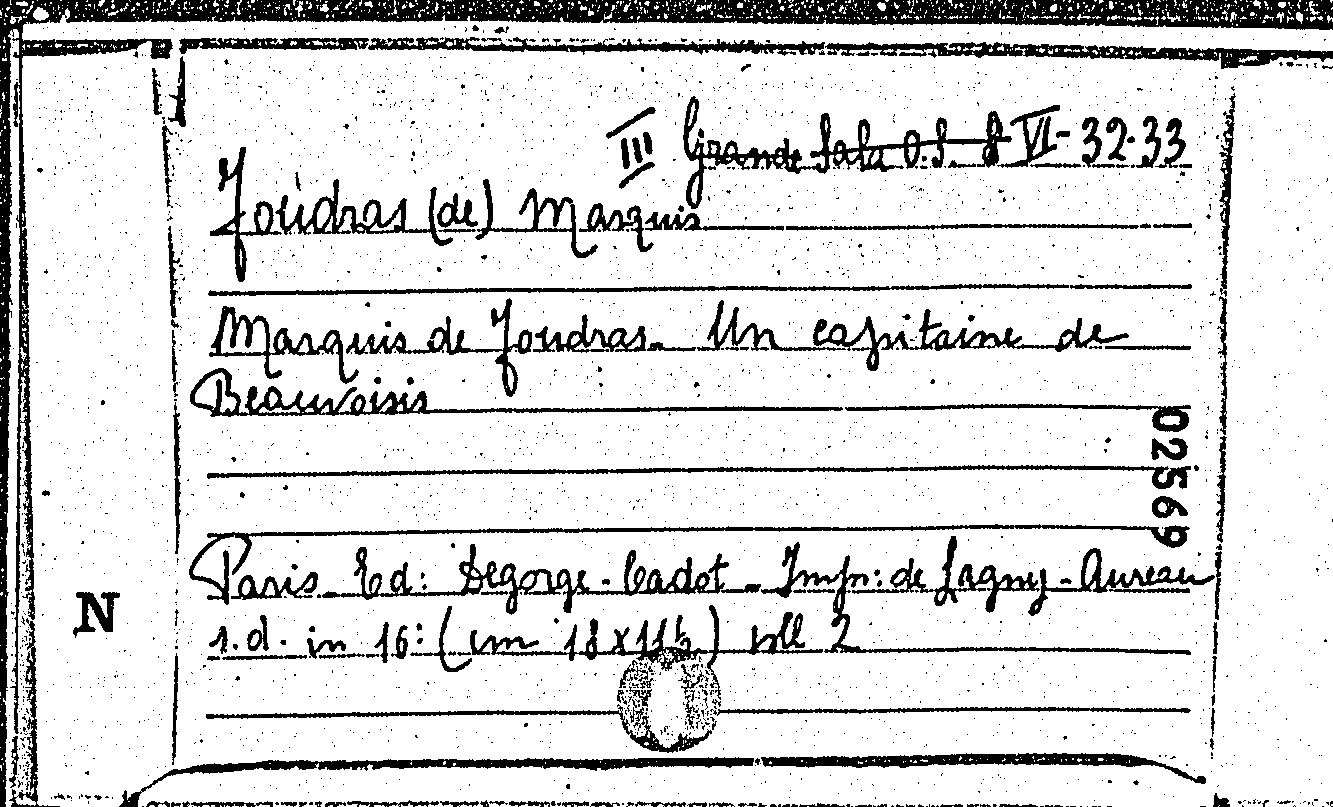 III Grande Sala O.S. 8 VI - 32-33
Foudras (de) Marquis
Marquis de Foudras. Un capitaine de
Beauvoisis
02569
Paris. Ed: Degorge-Cadot - Imp: de Lagny - Aureau
N
s.d. in 16: (cm 18 x 11½) voll 2